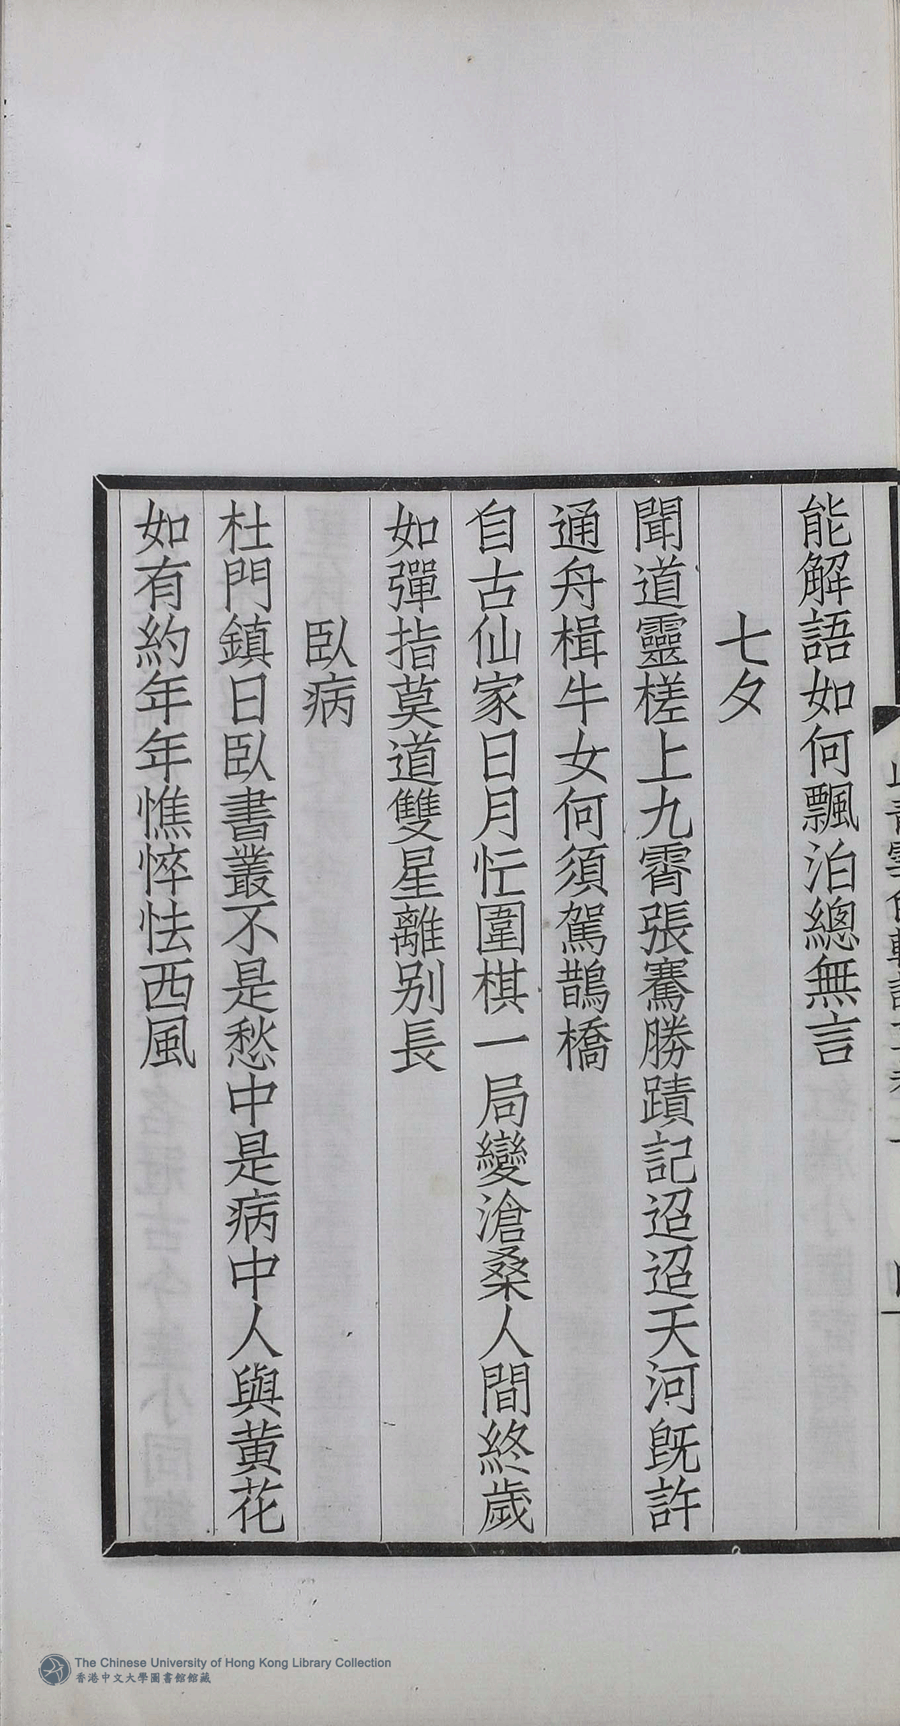 能解語如何飄泊總無言
七夕
聞道靈槎上九霄張騫勝蹟記迢迢天河既許
通舟楫牛女何須駕鵲橋
自古仙家日月忙圍棋一局變滄桑人間終歲
如彈指莫道雙星離別長
臥病
杜門鎮日臥書叢不是愁中是病中人與黄花
如有約年年憔悴怯西風
The Chinese University of Hong Kong Library Collection
香港中文大學圖書館館藏